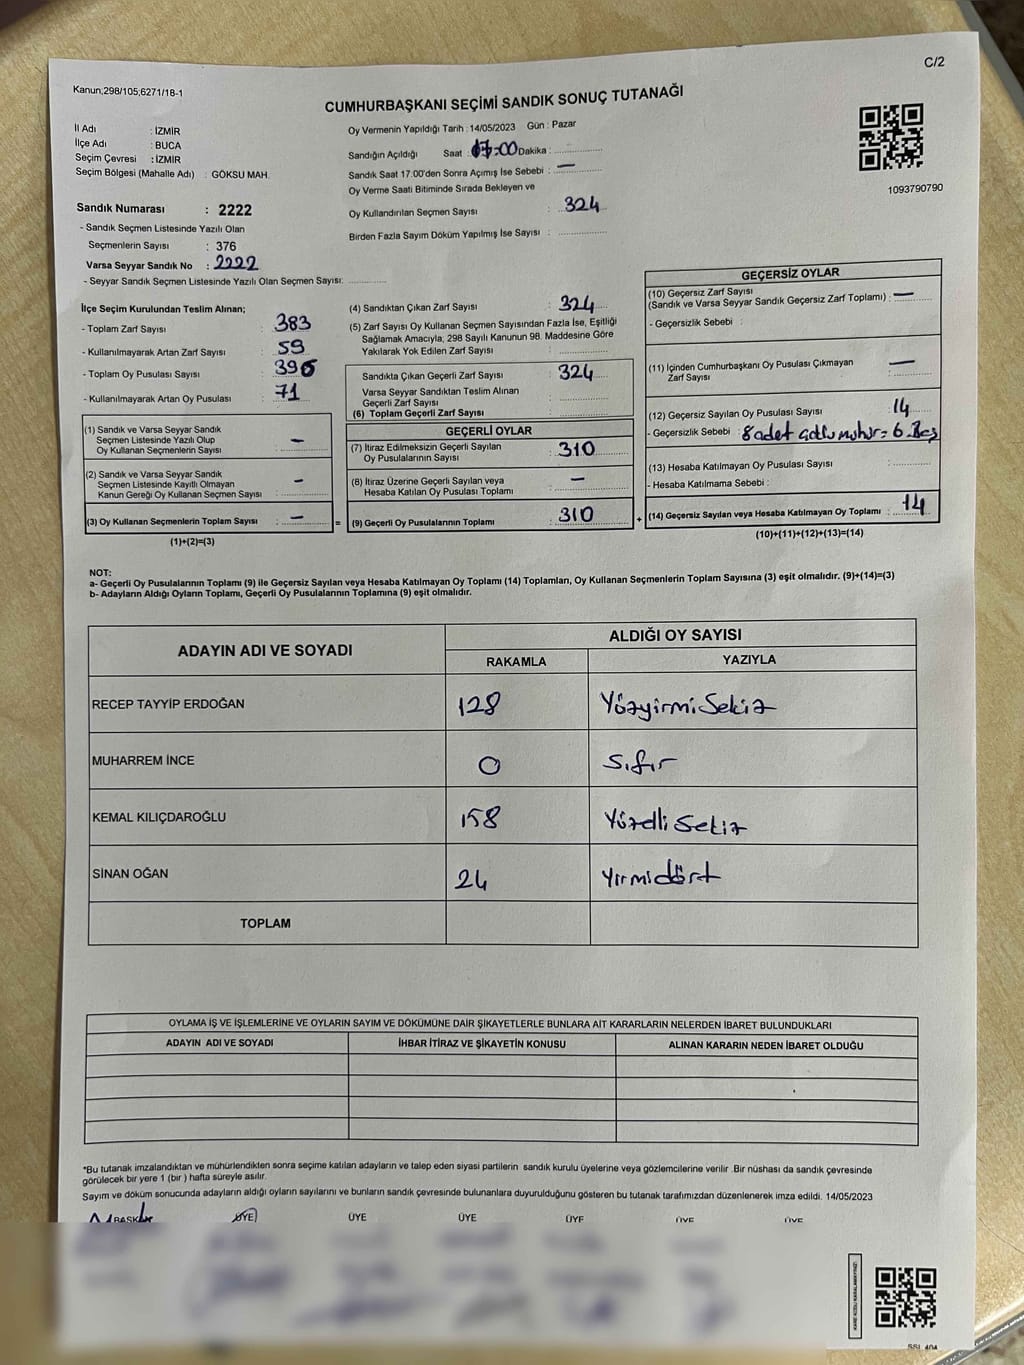 C/2
Kanun;298/105;6271/18-1
CUMHURBAŞKANI SEÇİMİ SANDIK SONUÇ TUTANAĞI
İl Adı : İZMİR
İlçe Adı : BUCA
Seçim Çevresi : İZMİR
Seçim Bölgesi (Mahalle Adı) : GÖKSU MAH.
Sandık Numarası : 2222
- Sandık Seçmen Listesinde Yazılı Olan
Seçmenlerin Sayısı : 376
Varsa Seyyar Sandık No : 2222
- Seyyar Sandık Seçmen Listesinde Yazılı Olan Seçmen Sayısı:
Oy Vermenin Yapıldığı Tarih : 14/05/2023 Gün : Pazar
Sandığın Açıldığı Saat : 17:00 Dakika :
Sandık Saat 17.00'den Sonra Açımış İse Sebebi : —
Oy Verme Saati Bitiminde Sırada Bekleyen ve
Oy Kullandırılan Seçmen Sayısı : 324
Birden Fazla Sayım Döküm Yapılmış İse Sayısı :
1093790790
İlçe Seçim Kurulundan Teslim Alınan;
- Toplam Zarf Sayısı : 383
- Kullanılmayarak Artan Zarf Sayısı : 59
- Toplam Oy Pusulası Sayısı : 395
- Kullanılmayarak Artan Oy Pusulası : 71
(1) Sandık ve Varsa Seyyar Sandık
Seçmen Listesinde Yazılı Olup
Oy Kullanan Seçmenlerin Sayısı : —
(2) Sandık ve Varsa Seyyar Sandık
Seçmen Listesinde Kayıtlı Olmayan
Kanun Gereği Oy Kullanan Seçmen Sayısı : —
(3) Oy Kullanan Seçmenlerin Toplam Sayısı : —
(1)+(2)=(3)
(4) Sandıktan Çıkan Zarf Sayısı : 324
(5) Zarf Sayısı Oy Kullanan Seçmen Sayısından Fazla İse, Eşitliği
Sağlamak Amacıyla, 298 Sayılı Kanunun 98. Maddesine Göre
Yakılarak Yok Edilen Zarf Sayısı :
Sandıkta Çıkan Geçerli Zarf Sayısı : 324
Varsa Seyyar Sandıktan Teslim Alınan
Geçerli Zarf Sayısı :
(6) Toplam Geçerli Zarf Sayısı :
GEÇERLİ OYLAR
(7) İtiraz Edilmeksizin Geçerli Sayılan
Oy Pusulalarının Sayısı : 310
(8) İtiraz Üzerine Geçerli Sayılan veya
Hesaba Katılan Oy Pusulası Toplamı : —
= (9) Geçerli Oy Pusulalarının Toplamı : 310
GEÇERSİZ OYLAR
(10) Geçersiz Zarf Sayısı
(Sandık ve Varsa Seyyar Sandık Geçersiz Zarf Toplamı) : —
- Geçersizlik Sebebi :
(11) İçinden Cumhurbaşkanı Oy Pusulası Çıkmayan
Zarf Sayısı : —
(12) Geçersiz Sayılan Oy Pusulası Sayısı : 14
- Geçersizlik Sebebi : 8 adet mühür = 6. Boş
(13) Hesaba Katılmayan Oy Pusulası Sayısı :
- Hesaba Katılmama Sebebi :
+ (14) Geçersiz Sayılan veya Hesaba Katılmayan Oy Toplamı : 14
(10)+(11)+(12)+(13)=(14)
NOT:
a- Geçerli Oy Pusulalarının Toplamı (9) ile Geçersiz Sayılan veya Hesaba Katılmayan Oy Toplamı (14) Toplamları, Oy Kullanan Seçmenlerin Toplam Sayısına (3) eşit olmalıdır. (9)+(14)=(3)
b- Adayların Aldığı Oyların Toplamı, Geçerli Oy Pusulalarının Toplamına (9) eşit olmalıdır.
ADAYIN ADI VE SOYADI
ALDIĞI OY SAYISI
RAKAMLA YAZIYLA
RECEP TAYYİP ERDOĞAN 128 YüzyirmiSekiz
MUHARREM İNCE 0 Sıfır
KEMAL KILIÇDAROĞLU 158 YüzelliSekiz
SİNAN OĞAN 24 Yirmidört
TOPLAM
OYLAMA İŞ VE İŞLEMLERİNE VE OYLARIN SAYIM VE DÖKÜMÜNE DAİR ŞİKAYETLERLE BUNLARA AİT KARARLARIN NELERDEN İBARET BULUNDUKLARI
ADAYIN ADI VE SOYADI İHBAR İTİRAZ VE ŞİKAYETİN KONUSU ALINAN KARARIN NEDEN İBARET OLDUĞU
*Bu tutanak imzalandıktan ve mühürlendikten sonra seçime katılan adayların ve talep eden siyasi partilerin sandık kurulu üyelerine veya gözlemcilerine verilir .Bir nüshası da sandık çevresinde
görülecek bir yere 1 (bir ) hafta süreyle asılır.
Sayım ve döküm sonucunda adayların aldığı oyların sayılarını ve bunların sandık çevresinde bulunanlara duyurulduğunu gösteren bu tutanak tarafımızdan düzenlenerek imza edildi. 14/05/2023
BAŞK ÜYE ÜYE ÜYE ÜYE ÜYE ÜYE
KARE KODU KARALAMAYINIZ!